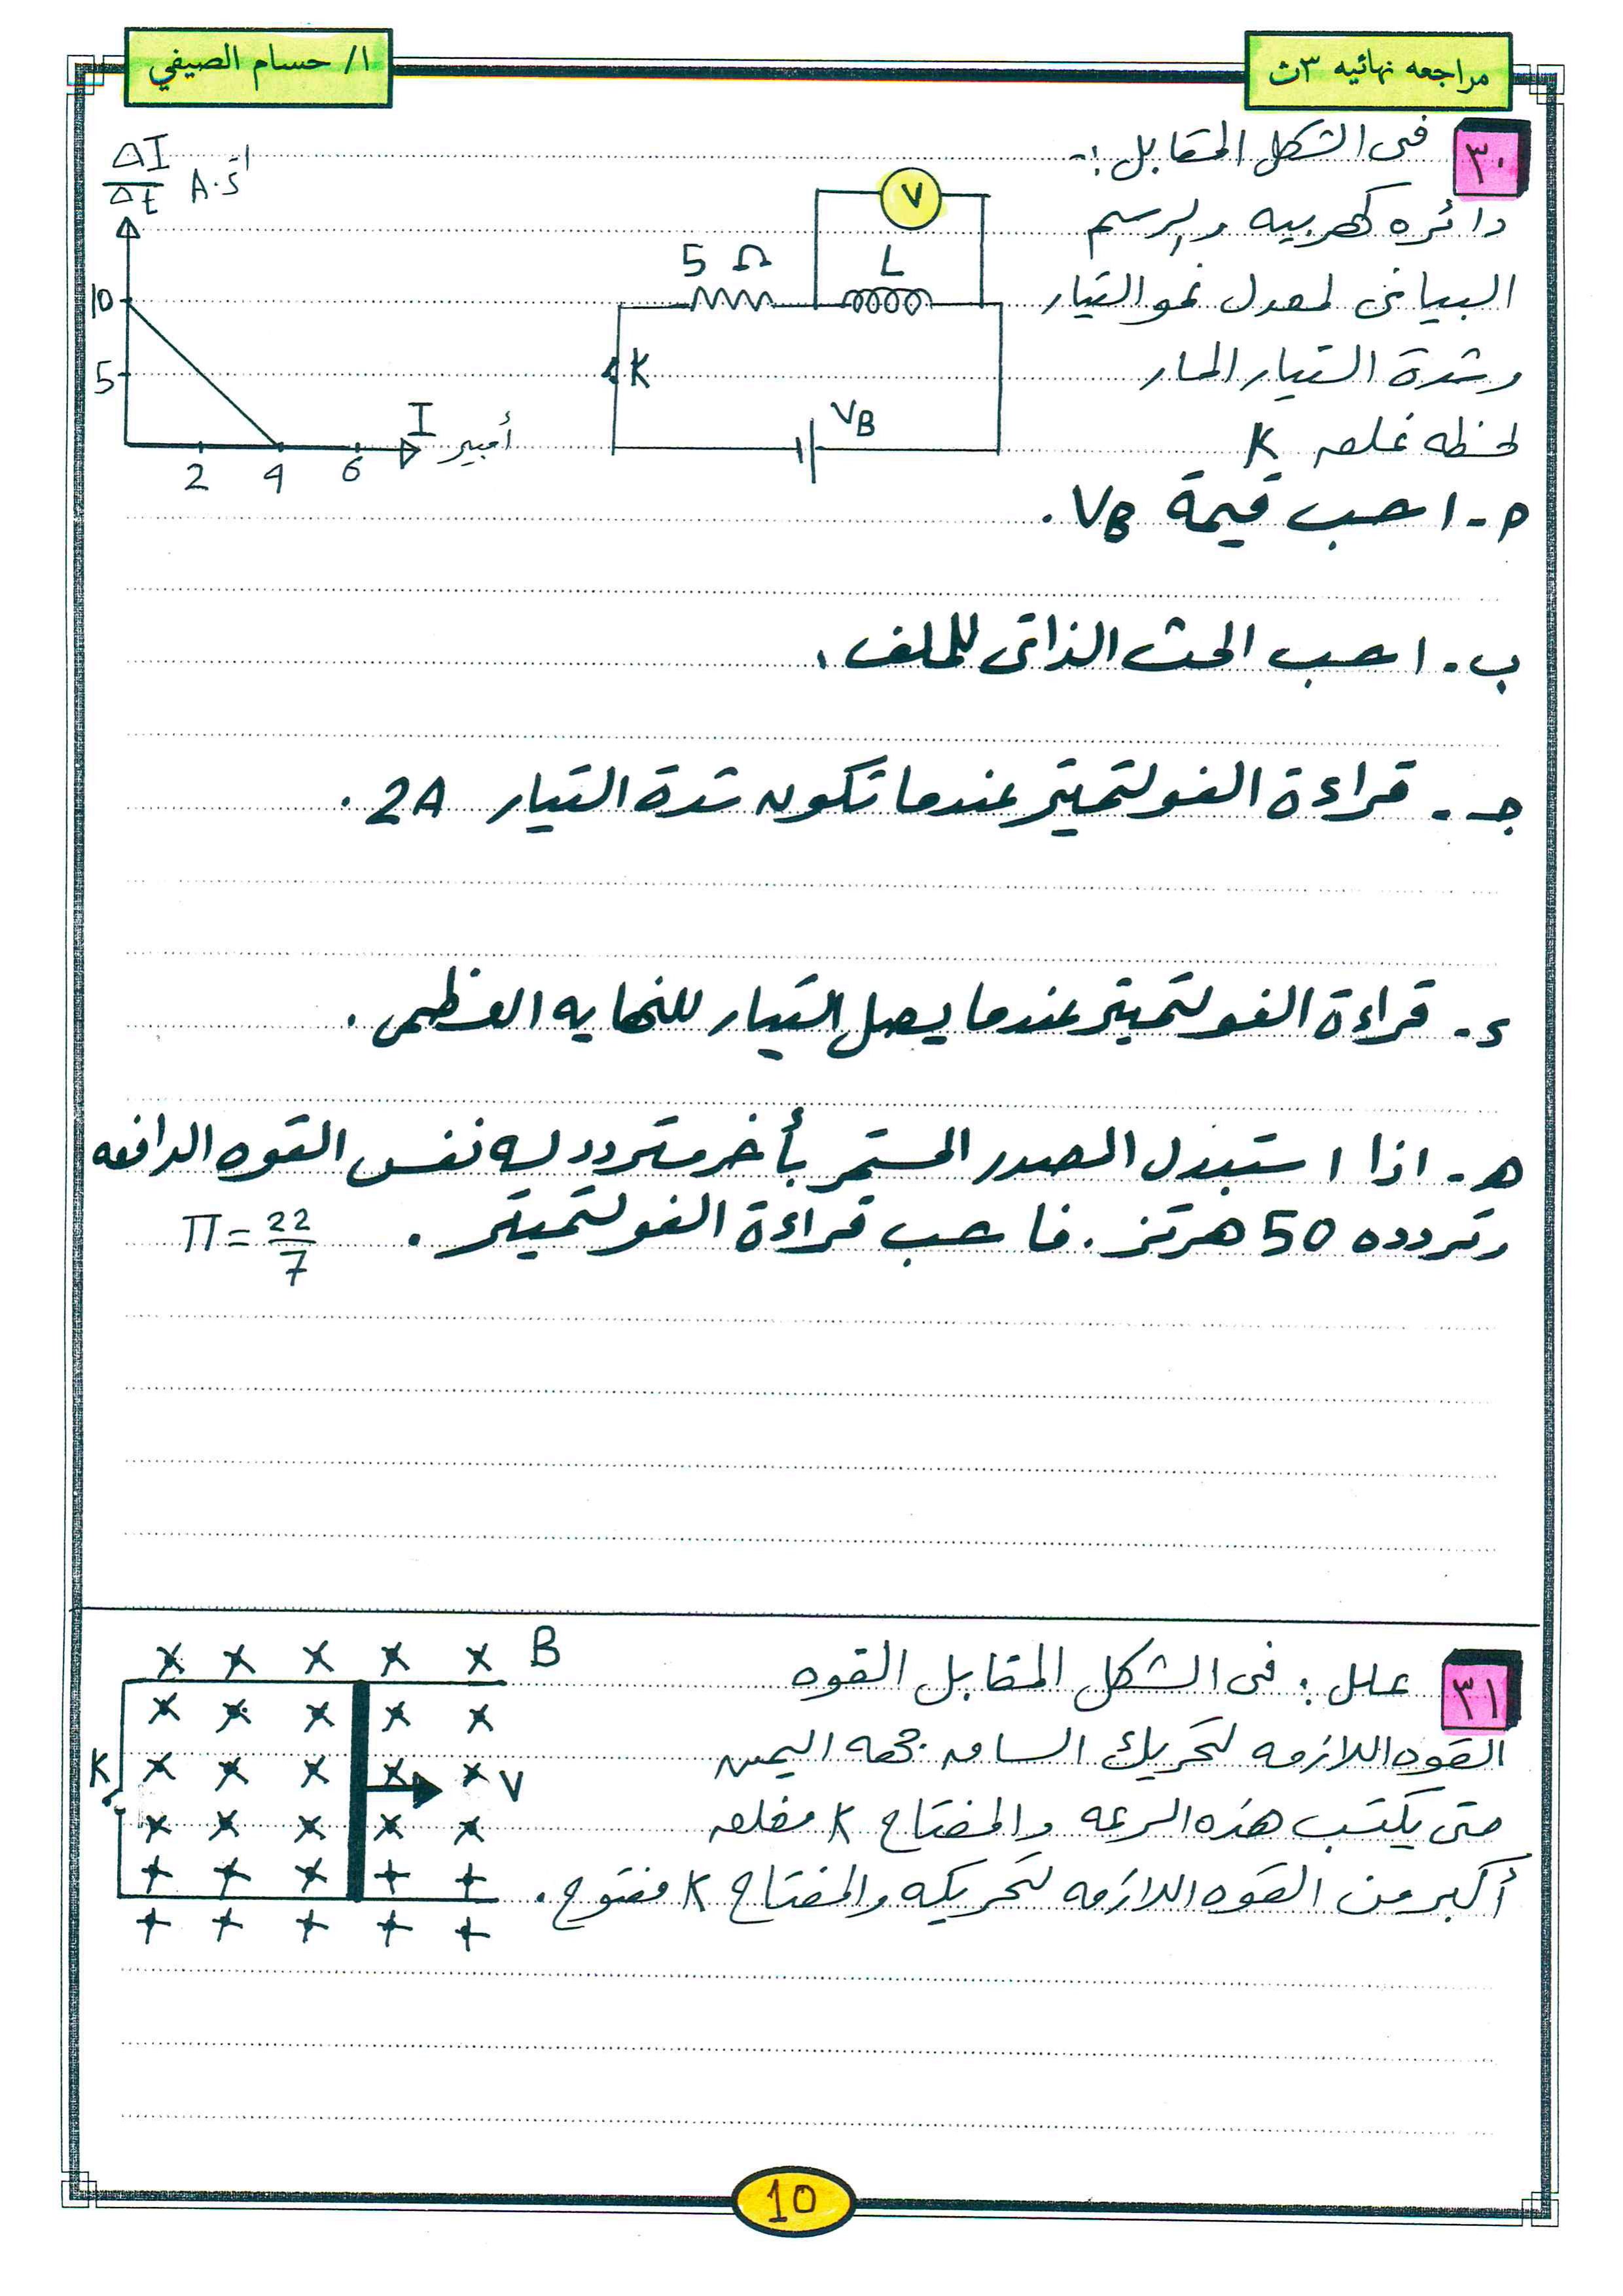 مراجعه نهائيه ٣ث
ا/ حسام الصيفي
٣٠
في الشكل المقابل :-
دائره كهربيه والرسم
البياني لمعدل نمو التيار
وشدة التيار المار
لحظه غلق K
ΔI/Δt A.s⁻¹
10
5
2 4 6
I أمبير
5 Ω
L
V
K
VB
م - احسب قيمة VB .
ب - احسب الحث الذاتي للملف .
جـ - قراءة الفولتميتر عندما تكون شدة التيار 2A .
ء - قراءة الفولتميتر عندما يصل التيار للنهايه العظمى .
هـ - اذا استبدل المصدر المستمر بأخر متردد له نفس القوه الدافعه
وتردده 50 هرتز . فاحسب قراءة الفولتميتر . π = 22/7
٣١
علل : في الشكل المقابل القوه
القوه اللازمه لتحريك الساق جهه اليمين
حتى يكتسب هذه السرعه والمفتاح K مغلق
أكبر من القوه اللازمه لتحريكه والمفتاح K مفتوح .
B
K
V
10